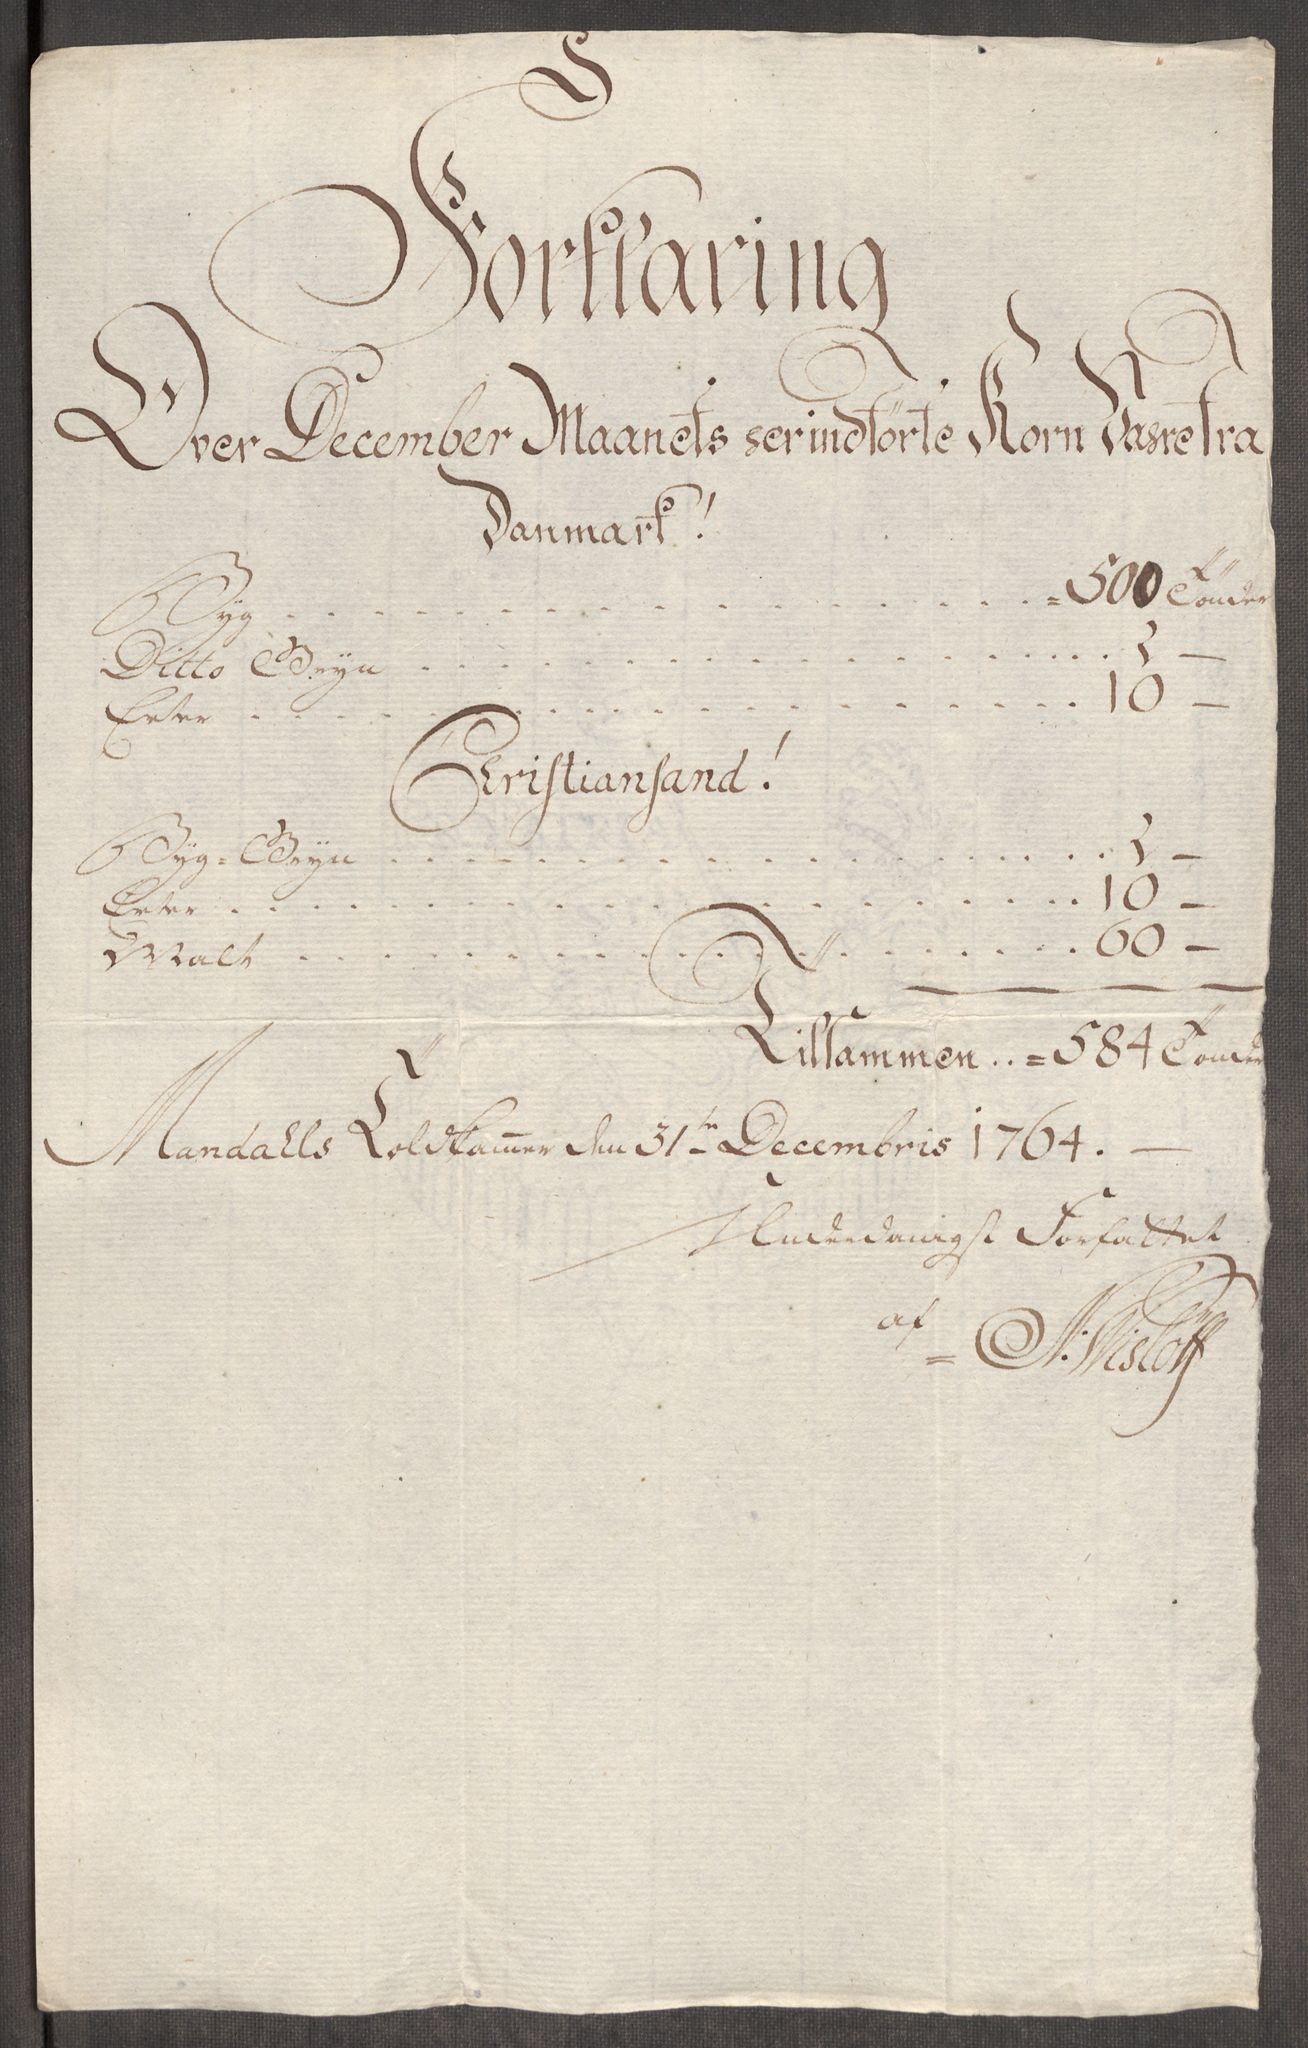 Forklaring
Over December Maanets her indförte Korn Vahre fra
Danmark!
Byg . . . . . = 500 Tönder
Ditto Gryn . . . . . 2 —
Erter . . . . . 10 —
Christiansand!
Byg=Gryn . . . . . 2 —
Erter . . . . . 10 —
Malt . . . . . 60 —
Tilsammen .. = 584 Tönder
Mandalls Toldkam̄er den 31te Decembris 1764. —
Underdanigst Forfattet
af = N: Wislöff